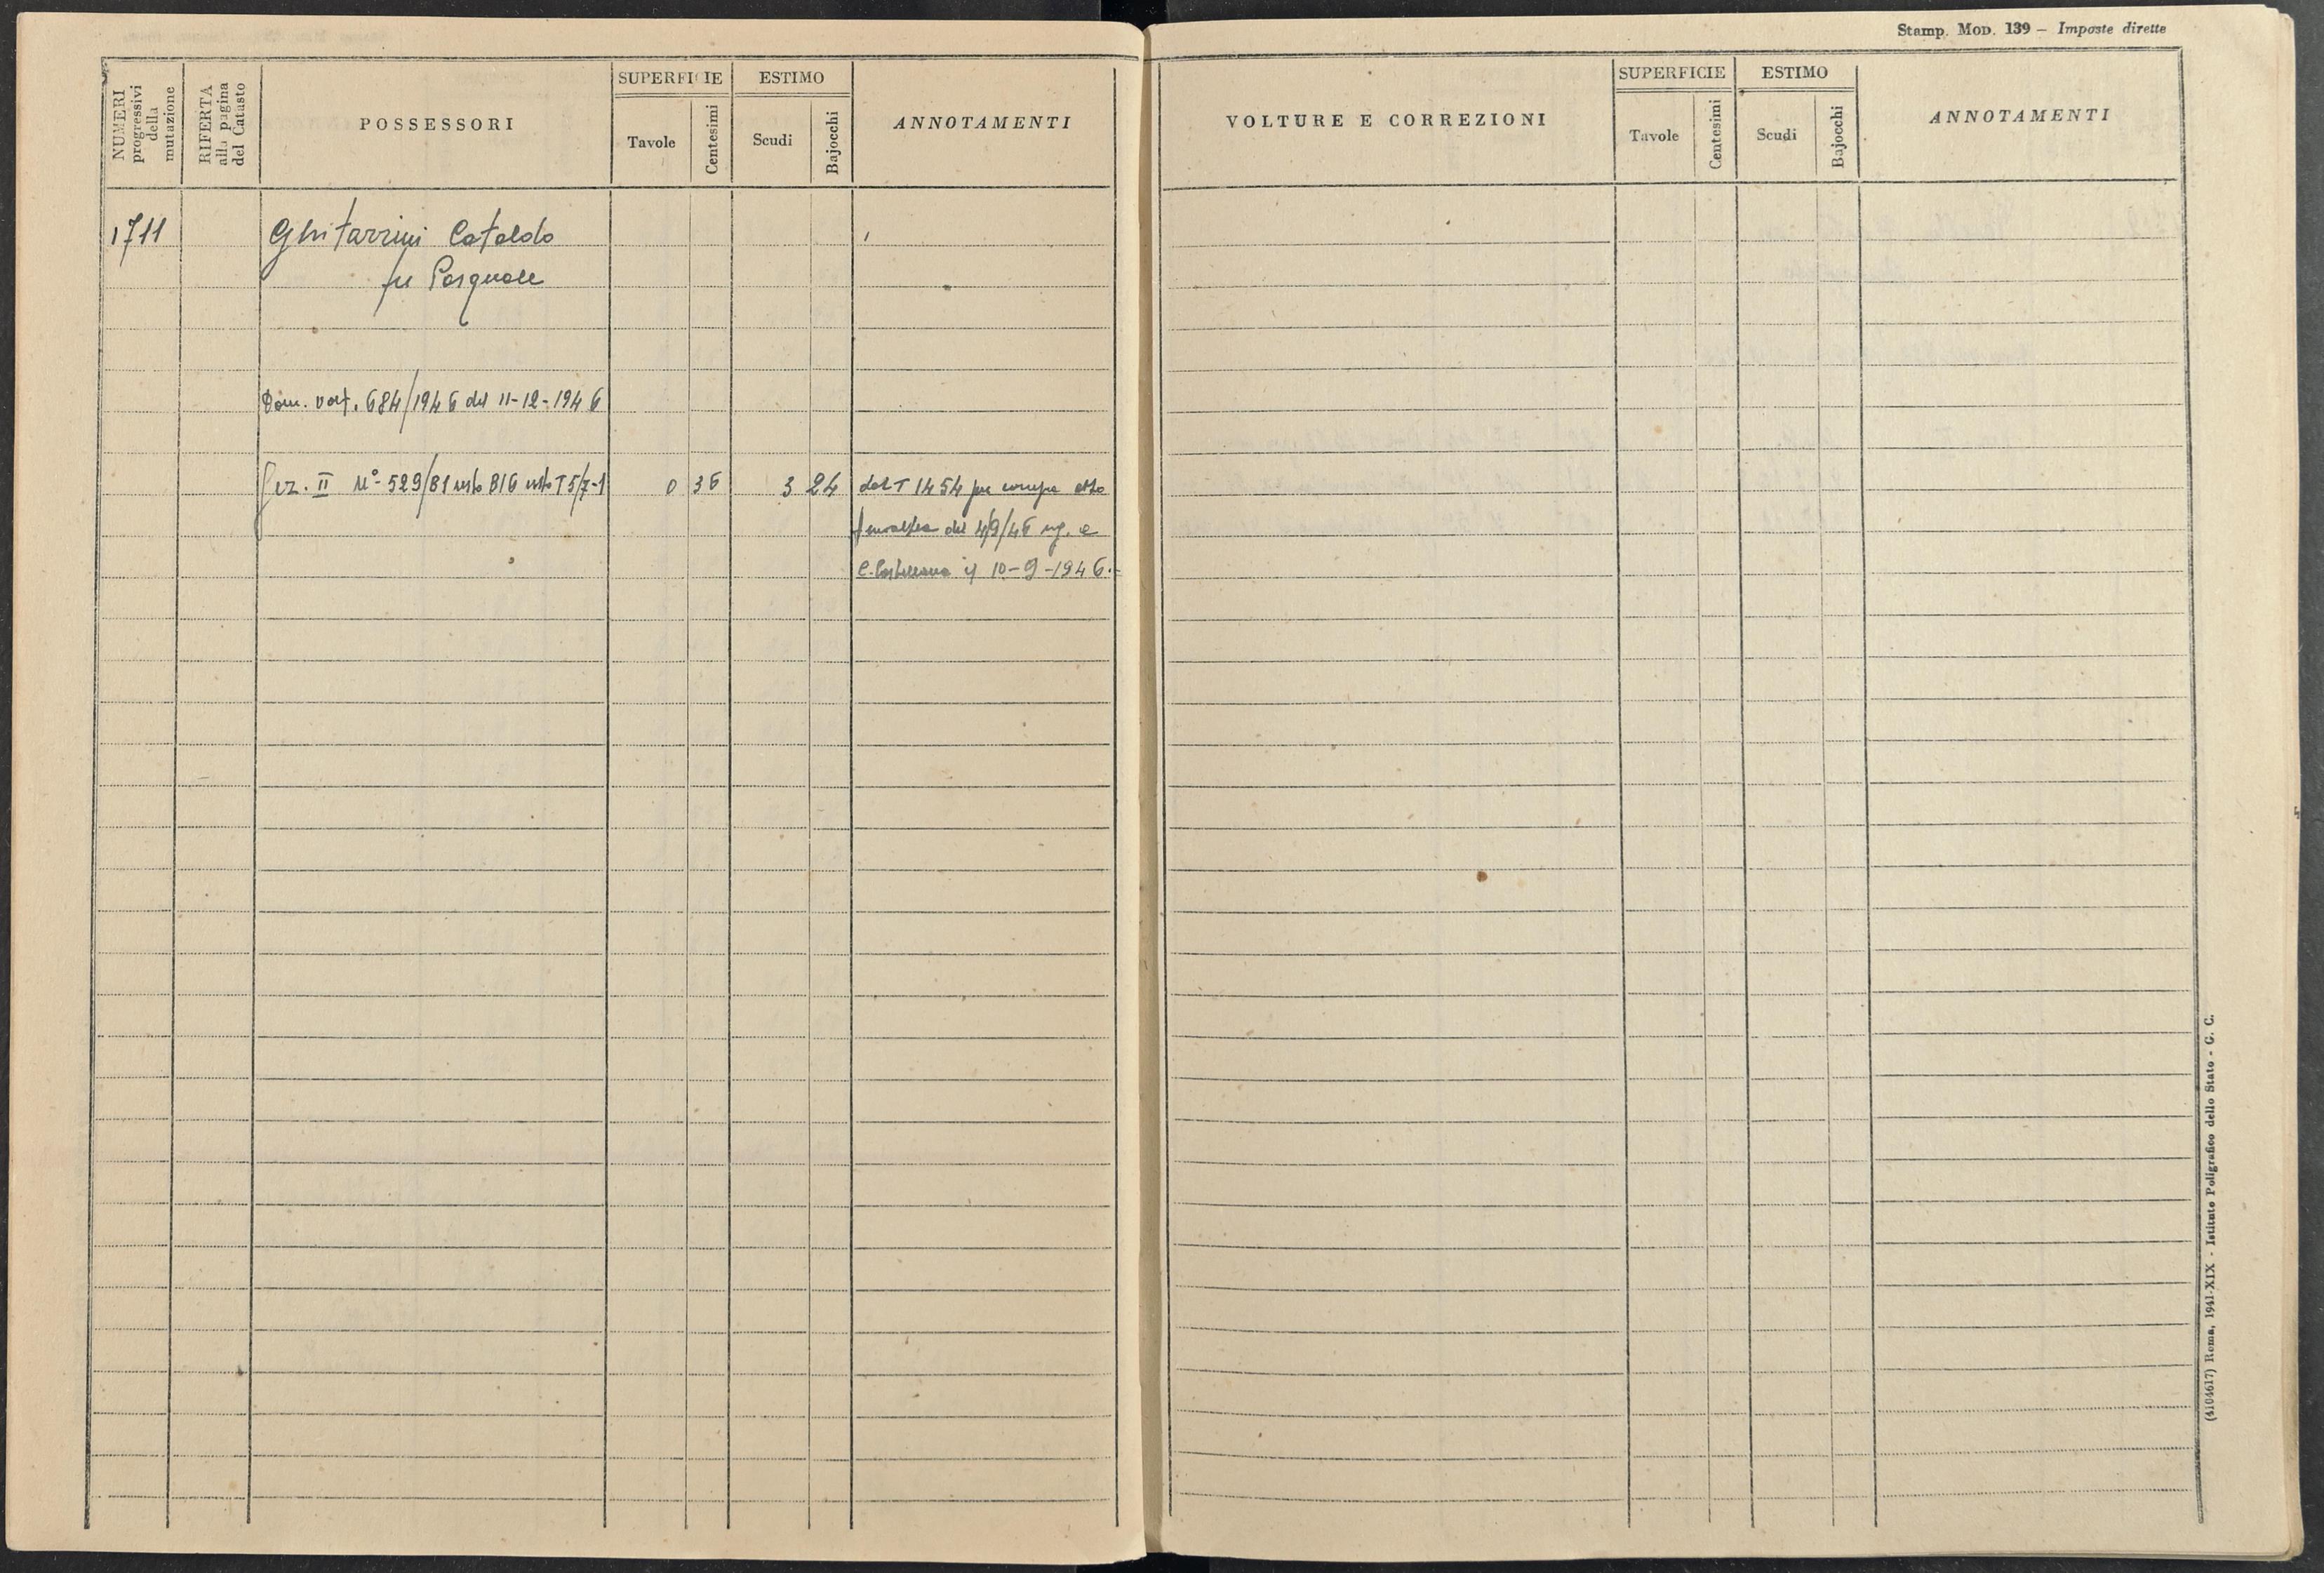 NUMERI
progressivi
della
mutazione
RIFERTA
alla pagina
del Catasto
POSSESSORI
SUPERFICIE
Tavole
Centesimi
ESTIMO
Scudi
Bajocchi
ANNOTAMENTI
1711
Ghitarrini Cataldo
fu Pasquale
Dom. volt. 684/1946 del 11-12-1946
Sez. II N° 529/81 816 T 5/7-1 0 36 3 24 dal T 1454 per compra atto
del 4/9/46 reg. a
C. Castellana il 10-9-1946.-
Stamp. Mod. 139 - Imposte dirette
VOLTURE E CORREZIONI
SUPERFICIE
Tavole
Centesimi
ESTIMO
Scudi
Bajocchi
ANNOTAMENTI
(4104617) Roma, 1941-XIX - Istituto Poligrafico dello Stato - G. C.